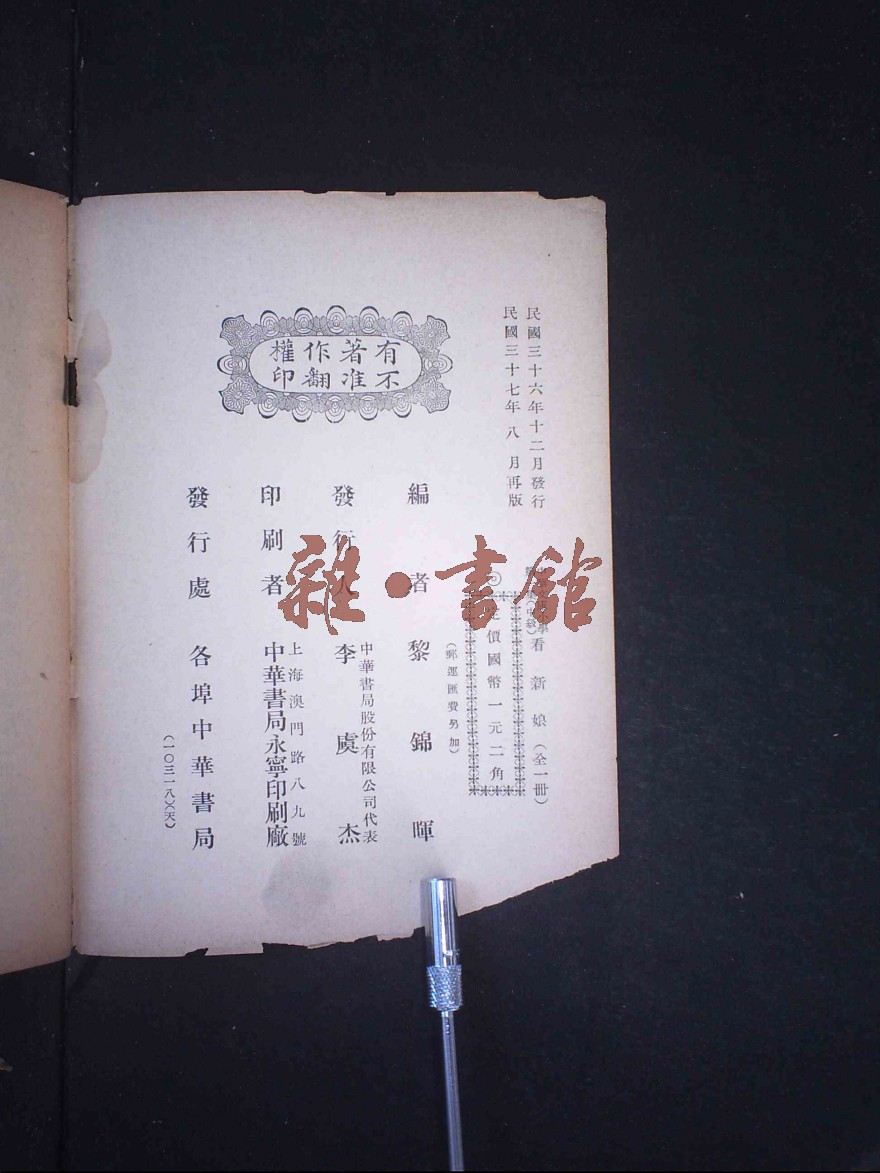 民國三十六年十二月發行
民國三十七年八月再版
看新娘（全一冊）
定價國幣一元二角
（郵運匯費另加）
有著作權
不准翻印
編者 黎錦暉
發行人 李虞杰
中華書局股份有限公司代表
印刷者 中華書局永寧印刷廠
上海澳門路八九號
發行處 各埠中華書局
（一〇三一八）（天）
雜·書館